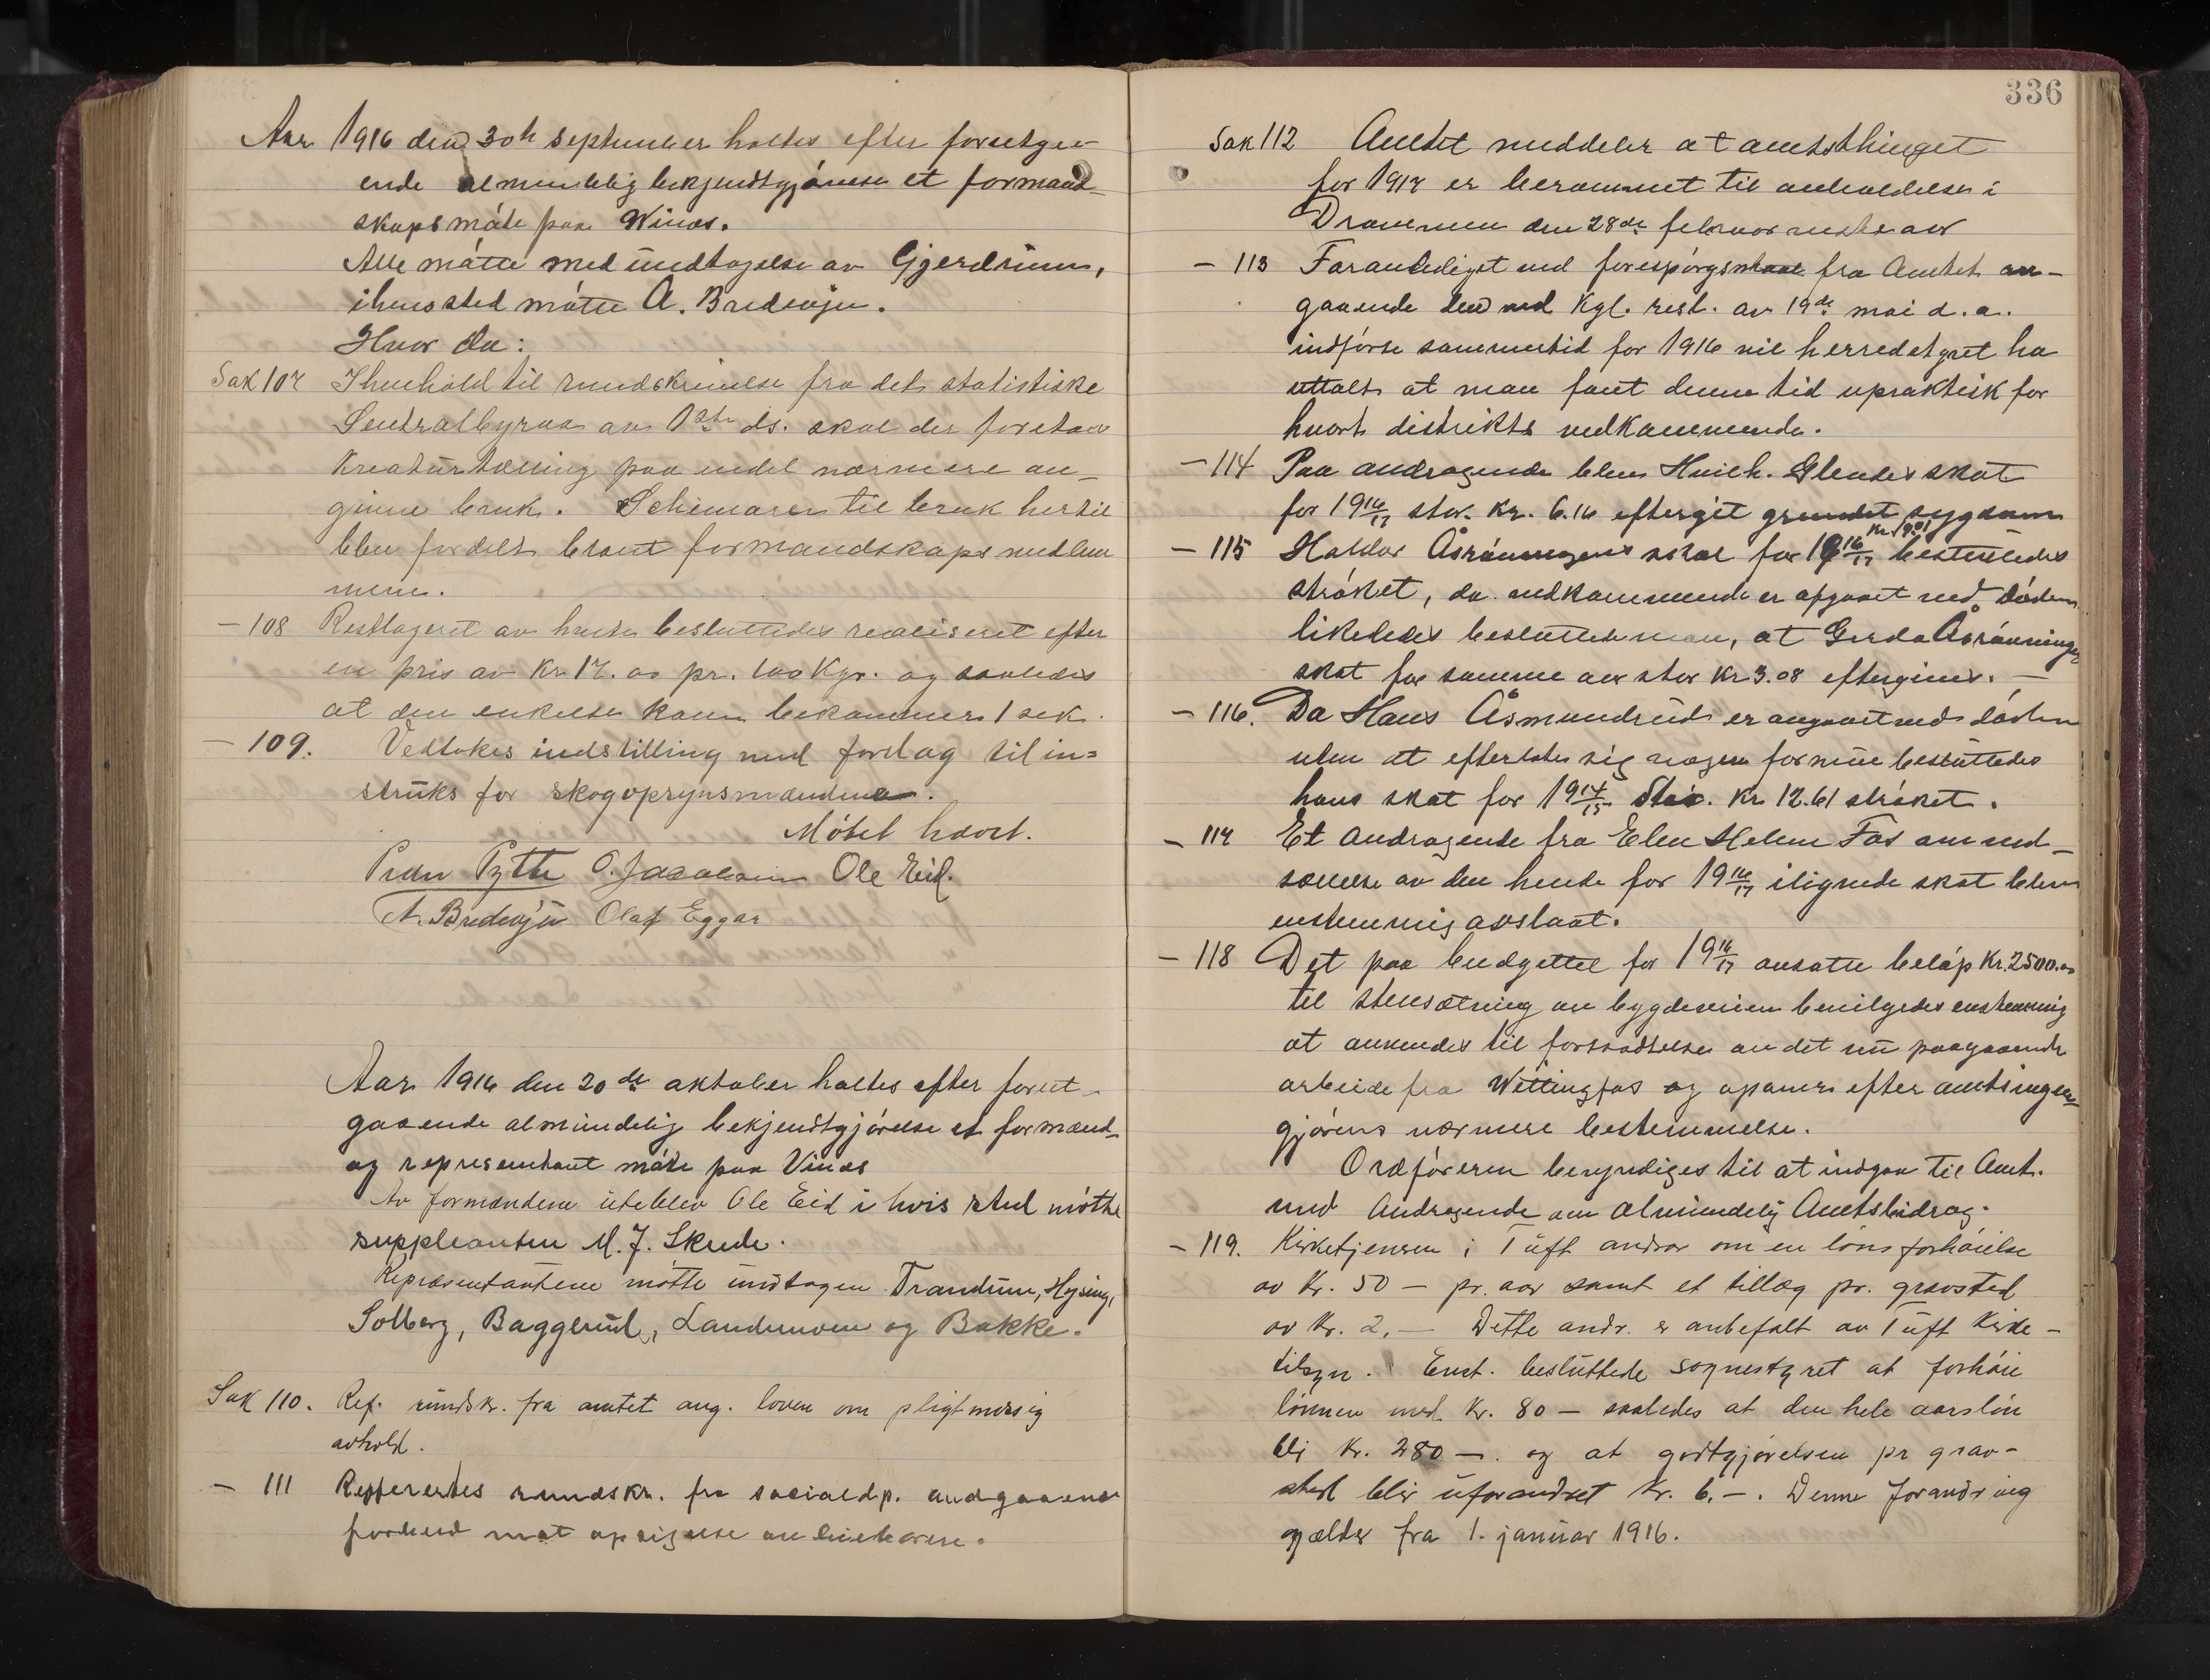 Aar 1916 den 30te september holtes efter forutgaa-
ende almindelig bekjendtgjörelse et formand-
skapsmöte paa Winæs.
Alle mötte med undtagelse av Gjerdrum,
ihvis sted mötte A. Bredesju.
Hvor da:
Sak 107 I henhold til rundskrivelse fra det statistiske
Sentralbyraa av 1ste ds. skal der foretaes
Kreaturtælling paa endel nærmere an-
givne bruk. Schemaer til bruk hertil
blev fordelt blant formandskaps medlem
mene.
- 108 Restlageret av besluttedes realiseret efter
en pris av Kr. 17.00 pr. 100 Kgr. og saaledes
at den enkelte kan bekomme 1 sek.
- 109. Vedtokes indstilling med forslag til in=
struks for skogopsynsmændene.
Mötet hævet.
Peder Pytte O. Jacobsen Ole Eid.
A. Bredesju Olaf Eggar
Aar 1916 den 20de oktober holtes efter forut-
gaaende almindelig bekjendtgjörelse et formænd-
og representant möte paa Vinæs
Av formændene uteblev Ole Eid i hvis sted mötte
suppleanten M. J. Skrede.
Repræsentantene mötte undtagen Trandum, Hejsing,
Solberg, Baggerud, Landemoen og Bakke.
Sak 110. Ref. rundskr. fra amtet ang. loven om pligtmæssig
avhold.
- 111 Refferertes rundskr. fra socialdp. andgaaende
forbud mot opsigelse av leieboere.
336
Sak 112 Amtet meddeler at amtsthinget
for 1917 er berammet til avholdelse i
Drammen den 28de februar næste aar
- 113 Foranlediget ved forespörgsmaal fra Amtet an-
gaaende den ved Kgl. resl. av 19de mai d.a.
indförte sommertid for 1916 vil herredstyret ha
uttalt at man fant denne tid upraktisk for
hvort distrikts vedkommende.
- 114 Paa andragende blev Hinrk. Glendes skat
for 19 16/17 stor. Kr. 6.16 eftergit grundet sygdom
- 115 Haldor Åsrönningens skat for 19 16/17 besluttedes
strøket, da vedkommende er afgaaet ved döden
likeledes besluttede man, at Gurda Åsrönningens
skat for samme aar stor Kr 3.08 eftergives. —
- 116. Da Hans Åsmundrud er avgaaet ved döden
uten at efterlate sig nogen formue besluttedes
hans skat for 19 14/15 Stor. Kr 12.61 ströket.
- 117 Et Andragende fra Elen Helene Fos om ned-
sættelse av den hende for 19 16/17 ilignede skat blev
enstemmig avslaat.
- 118 Det paa budgettet for 19 16/17 ansatte belöp Kr. 2500.00
til stensætning av bygdeveien bevilgedes enstemmig
at anvendes til fortsættelse av det nu paagaaende
arbeide fra Wittingfos og opover efter amtsingen-
gjörens nærmere bestemmelse.
Ordföreren bemyndiges til at indgaa til Amt.
med Andragende om almindelig Amtsbidrag.
- 119. Kirketjeneren i Tuft andrar om en lönsforhöielse
av Kr. 50 — pr. aar samt et tillæg pr. gravsted
av Kr. 2.— Dette andr. er anbefalt av Tuft Kirke-
tilsyn. Enst. besluttede sognestyret at forhöie
lönnen med Kr. 80 — saaledes at den hele aarslön
bli Kr. 280 — og at godtgjörelsen pr grav-
sted blir uforandret Kr. 6.—. Denne forandring
gjælder fra 1. januar 1916.